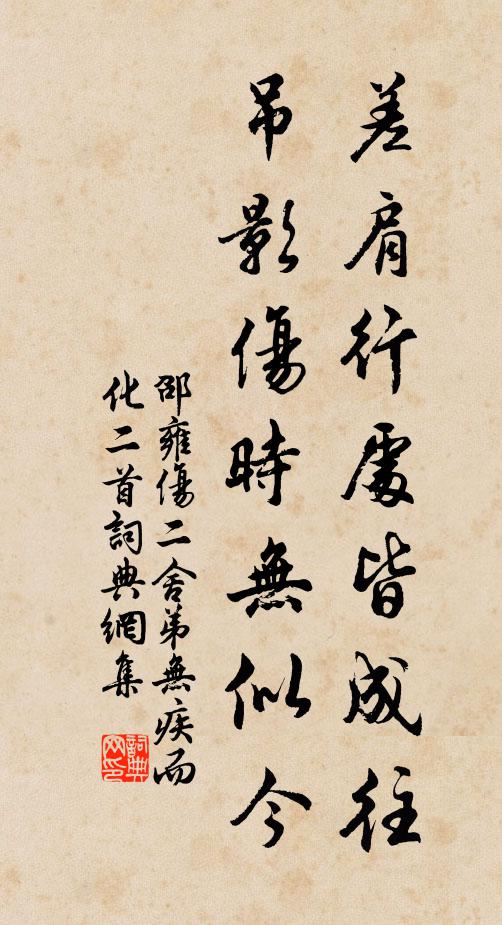 差肩行處皆成往
吊影傷時無似今
邵雍傷二舍弟無疾而
化二首詞典網集
詞典網印